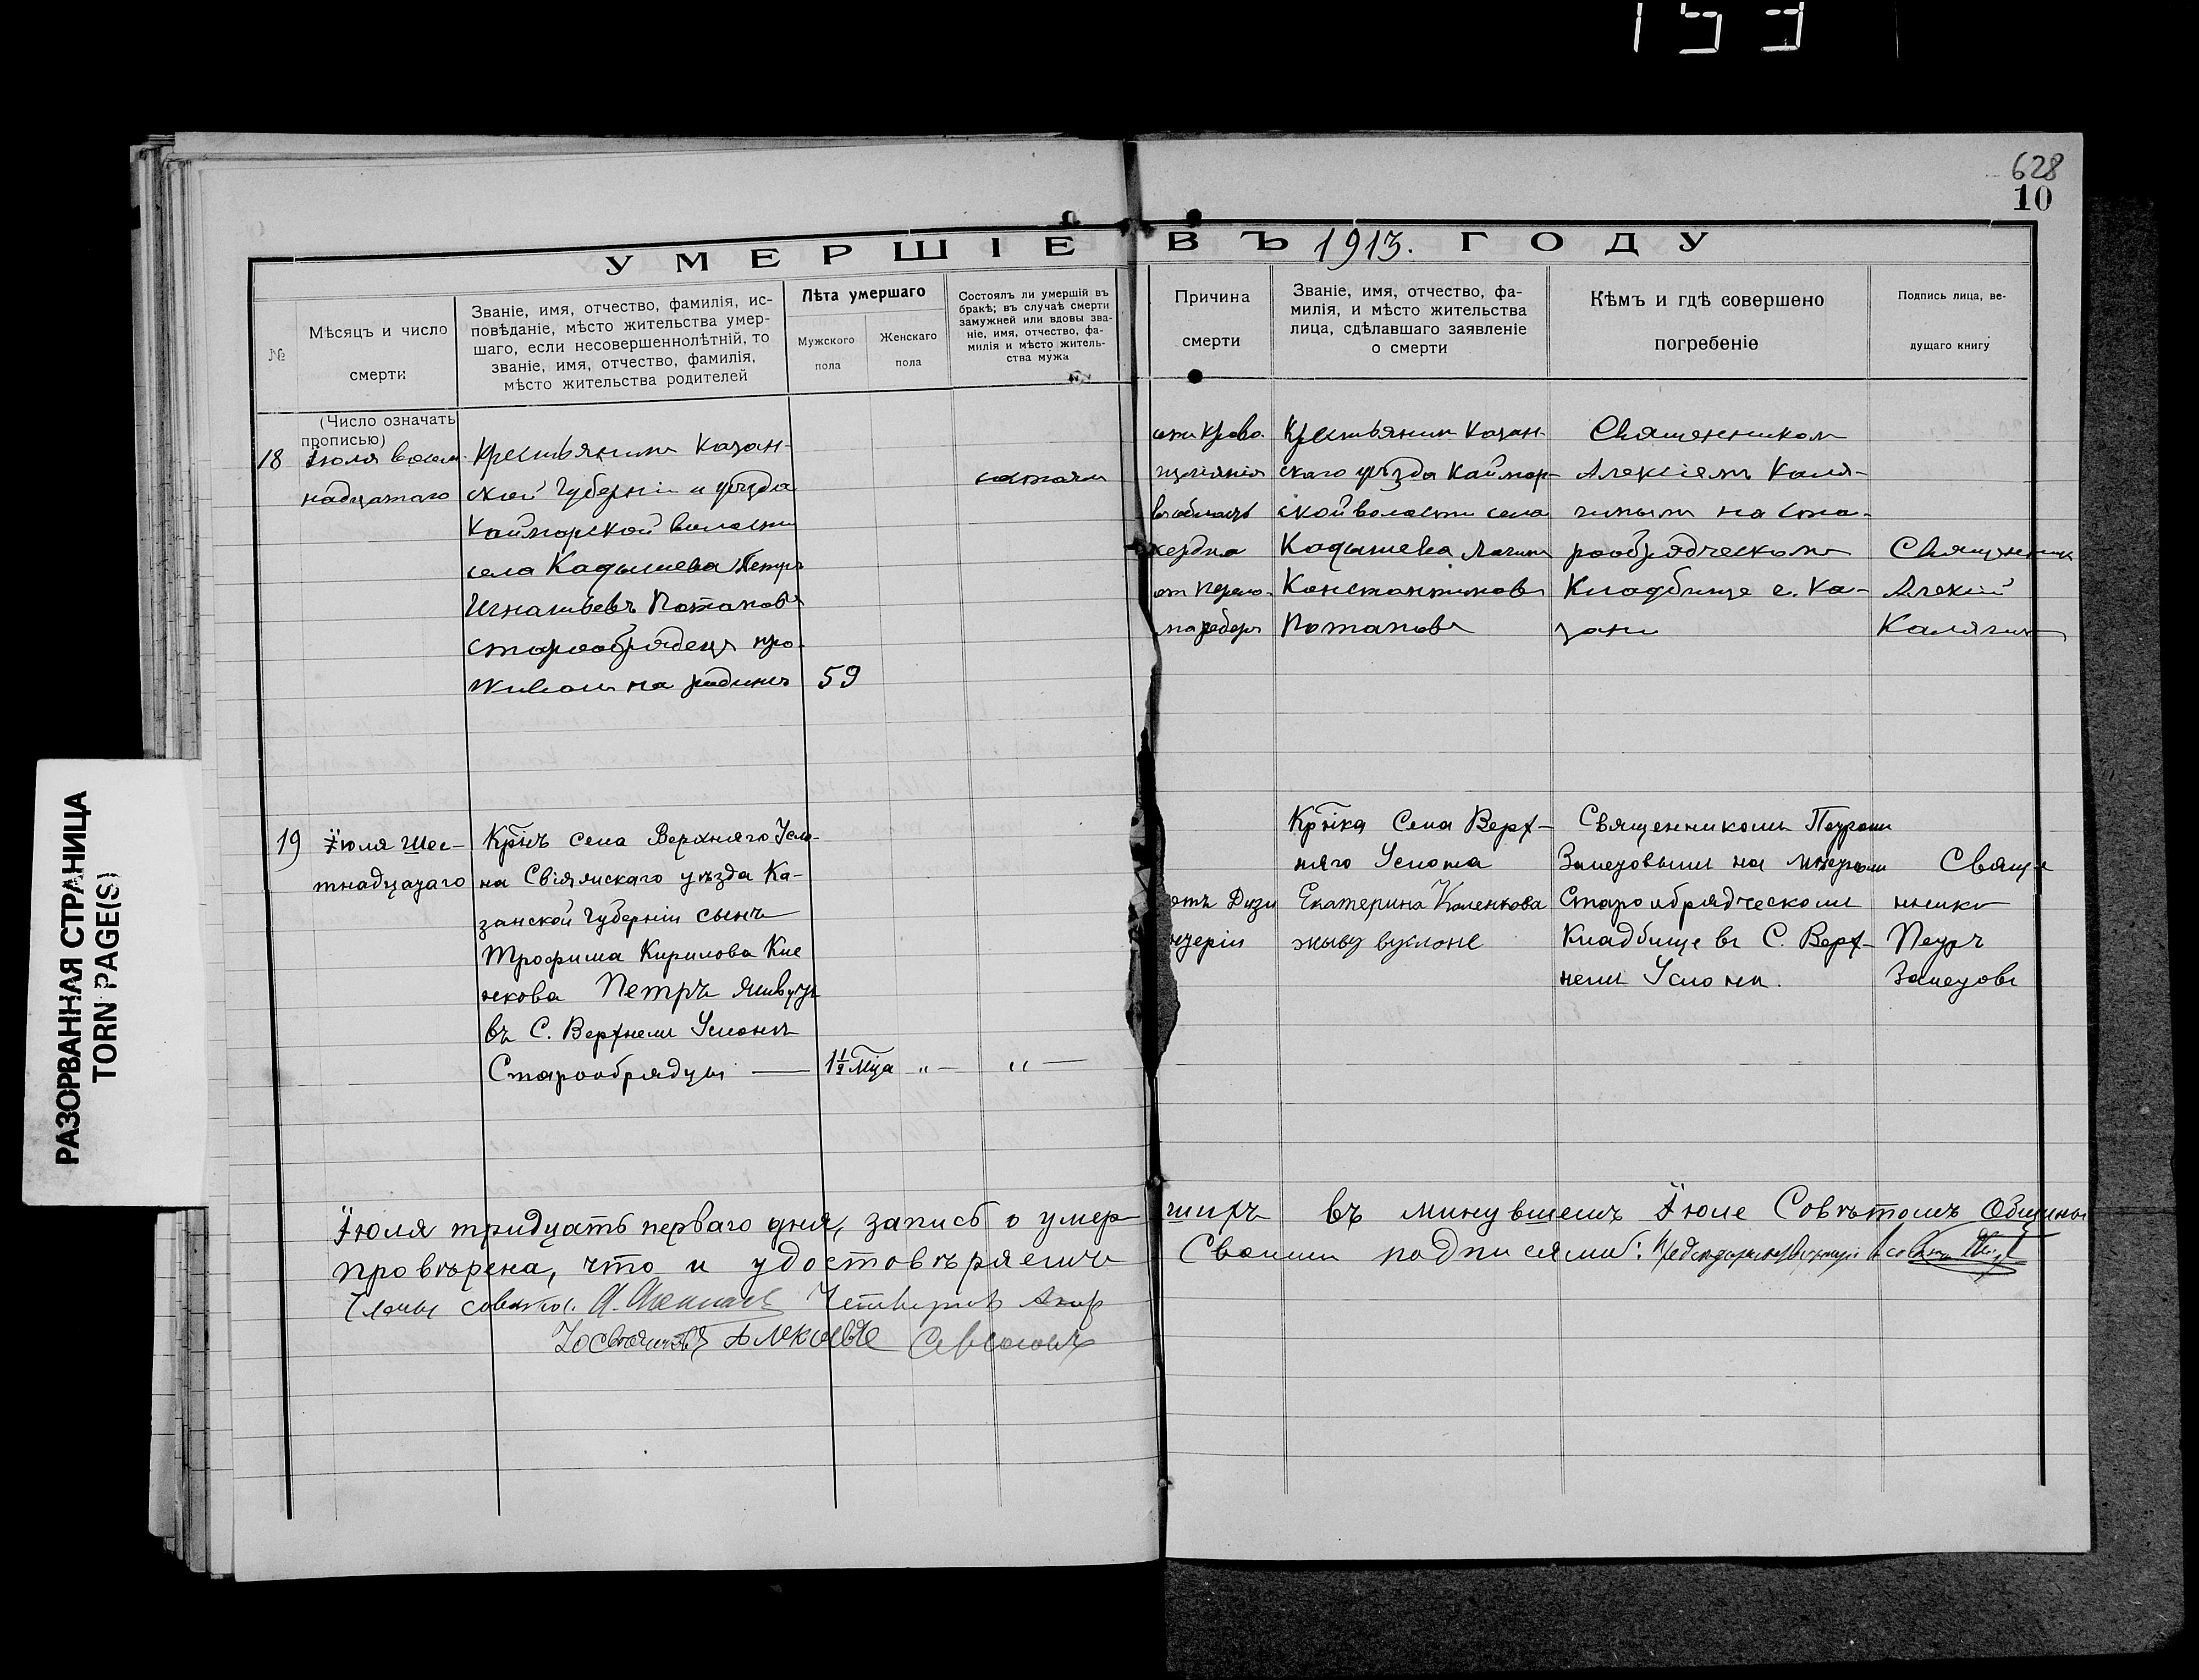 153
628
10
УМЕРШІЕ ВЪ 1913. ГОДУ
№
Мѣсяцъ и число
смерти
Званіе, имя, отчество, фамилія, ис-
повѣданіе, мѣсто жительства умер-
шаго, если несовершеннолѣтній, то
званіе, имя, отчество, фамилія,
мѣсто жительства родителей
Лѣта умершаго
Мужского
пола
Женскаго
пола
Состоялъ ли умершій въ
бракѣ; въ случаѣ смерти
замужней или вдовы зва-
ніе, имя, отчество, фа-
милія и мѣсто житель-
ства мужа
Причина
смерти
Званіе, имя, отчество, фа-
милія, и мѣсто жительства
лица, сдѣлавшаго заявленіе
о смерти
Кѣмъ и гдѣ совершено
погребеніе
Подпись лица, ве-
дущаго книгу
(Число означать
прописью)
18
Іюля восем-
надцатаго
Крестьянинъ Казан-
ской Губерніи и уѣзда
Каймарской волости
села Кадышева Петръ
Игнатьевъ Потаповъ
старообрядецъ про-
живалъ на родинѣ
59
состоялъ
кро­во-
излiянія
в области
сердца
от перело-
ма ребер
Крестьянинъ Казан-
скаго уѣзда Каймар-
ской волости села
Кадышева
Константиновъ
Потаповъ
Священником
Алексіемъ Каля-
гиным на ста-
рообрядческомъ
Кладбище г. Ка-
зани
Священникъ
Алексій
Калягинъ
19
Іюля Шес-
тнадцатаго
Крнъ села Верхняго Усло-
на Свіяжскаго уѣзда Ка-
занской Губерніи сынъ
Трофима Кирилова Кле
нкова Петръ живущ
въ С. Верхнем Услонѣ
Старообрядцы —
1½ мца „ — „ —
отъ Дизи
нтеріи
Крнка Села Верх-
няго Услона
Екатерина Кленкова
живу вуслоне
Священником Петром
Залетовым на мѣстном
Старообрядческом
Кладбище въ С. Верх-
нем Услони.
Свяще
нникъ
Петръ
Залетовъ
Іюля тридцать перваго дня, запись о умер
ших въ минувшемъ Іюле Совѣтомъ Общины
провѣрена, что и удостовѣряемъ
Своими подписями:
Члены совѣта:
РАЗОРВАННАЯ СТРАНИЦА
TORN PAGE(S)